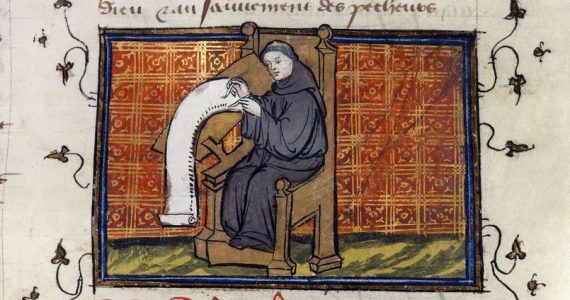 dieu ⁊ au sauuement des pecheurs